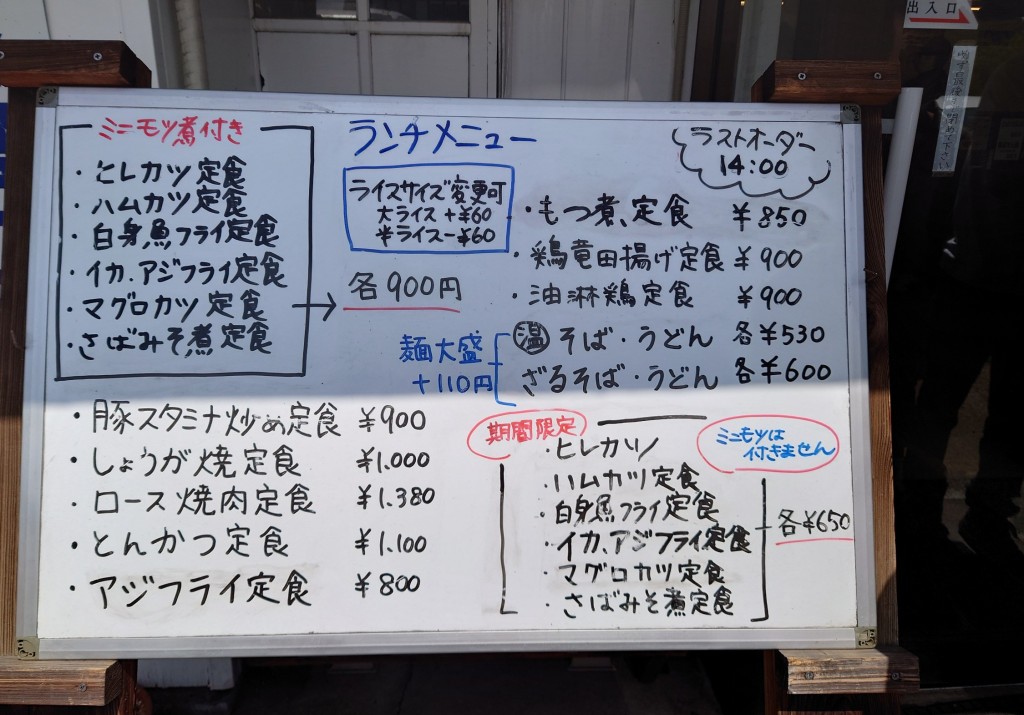 出入口
ランチメニュー
ラストオーダー
14:00
ミニモツ煮付き
・ヒレカツ定食
・ハムカツ定食
・白身魚フライ定食
・イカ、アジフライ定食
・マグロカツ定食
・さばみそ煮定食
各900円
ライスサイズ変更可
大ライス+¥60
半ライス-¥60
・もつ煮定食 ¥850
・鶏竜田揚げ定食 ¥900
・油淋鶏定食 ¥900
温 そば・うどん 各¥530
ざるそば・うどん 各¥600
麺大盛
+110円
・豚スタミナ炒め定食 ¥900
・しょうが焼定食 ¥1.000
・ロース焼肉定食 ¥1.380
・とんかつ定食 ¥1.100
・アジフライ定食 ¥800
期間限定
ミニモツは
付きません
・ヒレカツ
・ハムカツ定食
・白身魚フライ定食
・イカ、アジフライ定食
・マグロカツ定食
・さばみそ煮定食
各¥650